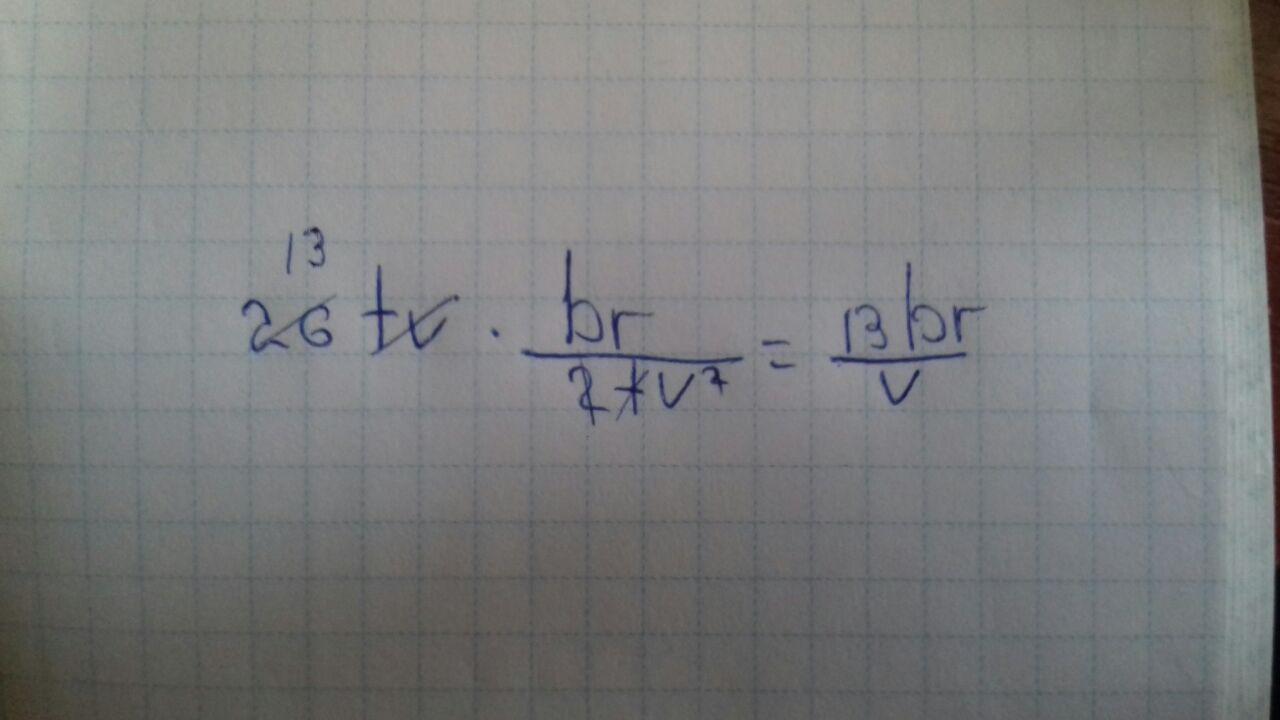 13
26 tv · br / 2 t v² = 13 br / v